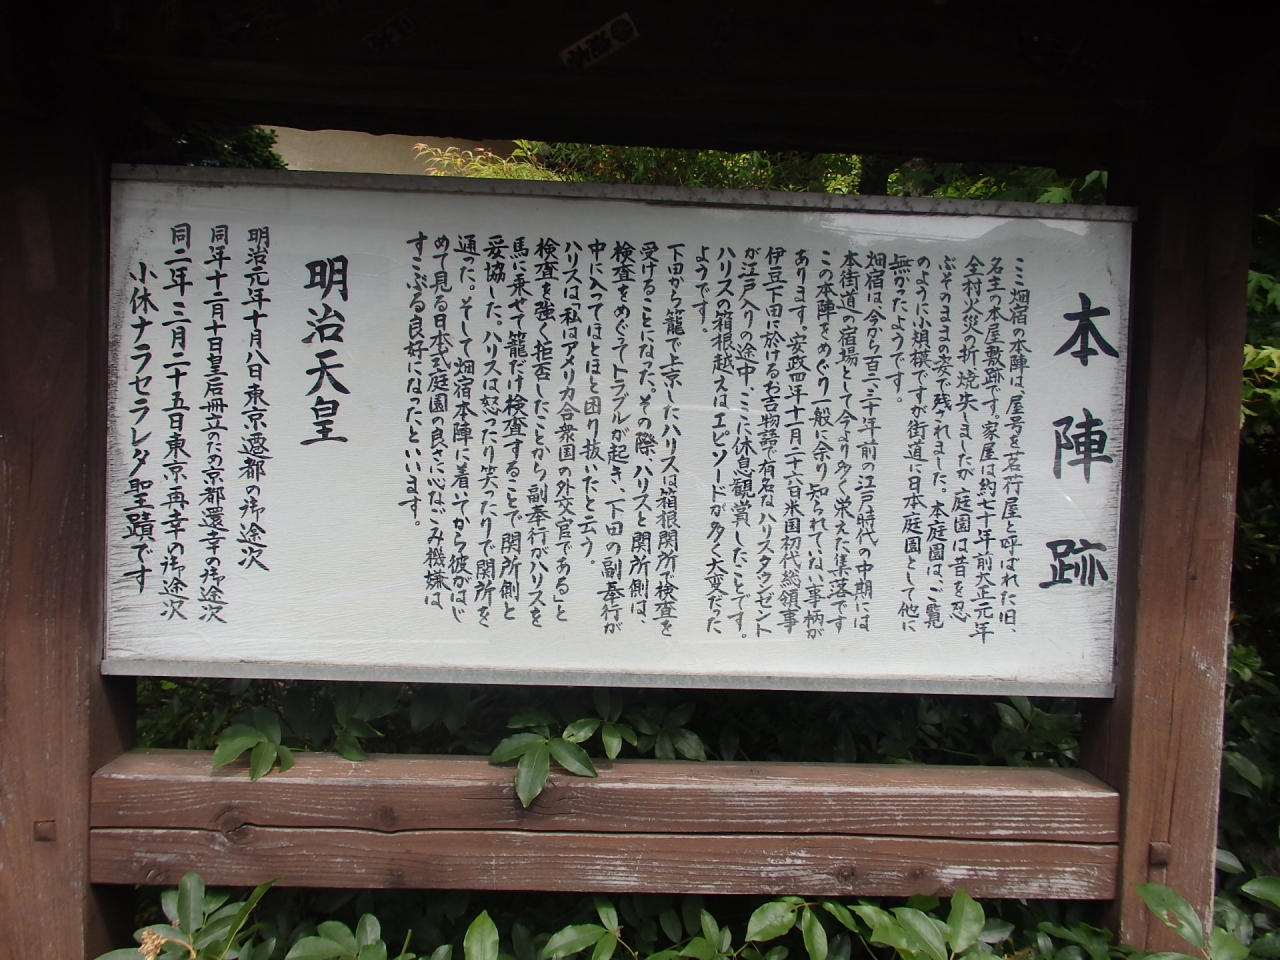 本陣跡
ここ畑宿の本陣は屋号を茗荷屋と呼ばれた旧、
名主の本屋敷跡です。家屋は約七十年前大正元年
全村火災の折、焼失しましたが庭園は昔を忍
ぶそのままの姿で残されました。本庭園は、ご覧
のように小規模ですが街道に日本庭園として他に
無かったようです。
畑宿は今から百二、三十年前の江戸時代の中期には
本街道の宿場として今より多く栄えた集落です
この本陣をめぐり一般に余り知られていない事柄が
あります。安政四年十一月二十六日米国初代総領事
伊豆下田に於けるお吉物語で有名なハリスタウンゼント
が江戸入りの途中、ここに休息観賞したことです。
ハリスの箱根越えはエピソードが多く大変だった
ようです。
下田から籠で上京したハリスは箱根関所で検査を
受けることになった。その際ハリスと関所側は、
検査をめぐってトラブルが起き、下田の副奉行が
中に入ってほとほと困り抜いたと云う。
ハリスは「私はアメリカ合衆国の外交官である」と
検査を強く拒否したことから副奉行がハリスを
馬に乗せて籠だけ検査することで関所側と
妥協した。ハリスは怒ったり笑ったりで関所を
通った。そして畑宿本陣に着いてから彼がはじ
めて見る日本式庭園の良さに心なごみ機嫌は
すこぶる良好になったといいます。
明治天皇
明治元年十月八日東京遷都の御途次
同年十二月十日皇后冊立のため京都還幸の御途次
同二年三月二十五日東京再幸の御途次
小休ナラセラレタ聖蹟です